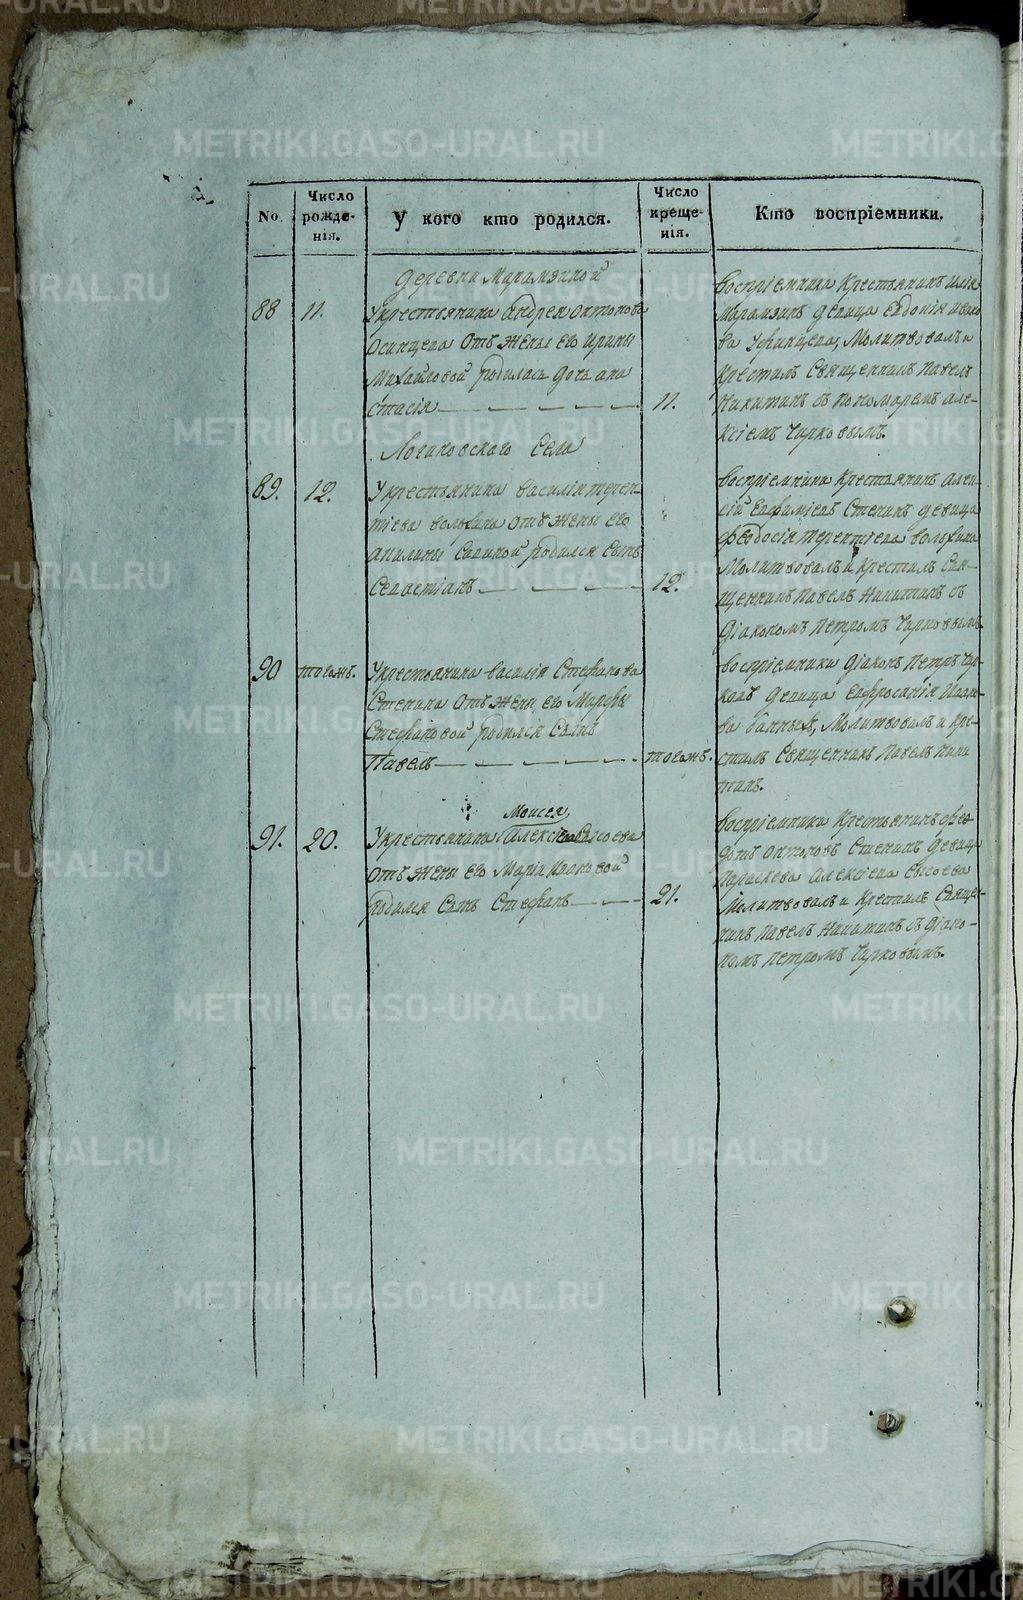 No
Число рожденія.
У кого кто родился.
Число крещенія.
Кто воспріемники.
Деревни Марамзиной
88
11.
У крестьянина Андрея Антонова
Осинцева отъ жены его Ирины
Михайловой родилась дочь Ана
стасія
11.
воспріемники крестьянинъ
Марамзинъ девица Евдокія Ивано
ва Молитвовалъ и
крестилъ священникъ Павелъ
Никитинъ съ пономаремъ Але-
ксіемъ Чирковымъ.
Логиновскаго Села
89.
12.
У крестьянина Василія терен-
тіева отъ жены его
родился сынъ
Севастіанъ
12.
воспріемники крестьянинъ Алек-
сій Евфиміевъ Стенинъ девица
феодосія терентіева
Молитвовалъ и крестилъ свя-
щенникъ Павелъ Никитинъ съ
діакономъ Петромъ Чирковымъ
90
тогожъ.
У крестьянина Василія Стефанова
Стенина отъ жены его Марфы
Стефановой родился сынъ
Павелъ
тогожъ.
воспріемники діаконъ Петръ Чир-
ковъ девица Евфросинія Ивано-
ва Молитвовалъ и кре-
стилъ священникъ Павелъ Ники
тинъ.
91.
20.
Моисея
У крестьянина Сысоева
отъ жены его Маріи Ивановой
родился сынъ Стефанъ
21.
воспріемники крестьянинъ фе-
дотъ Антоновъ Стенинъ девица
Параскева Алексіева Сысоева
Молитвовалъ и крестилъ священ-
никъ Павелъ Никитинъ съ діако-
номъ Петромъ Чирковымъ.
METRIKI.GASO-URAL.RU